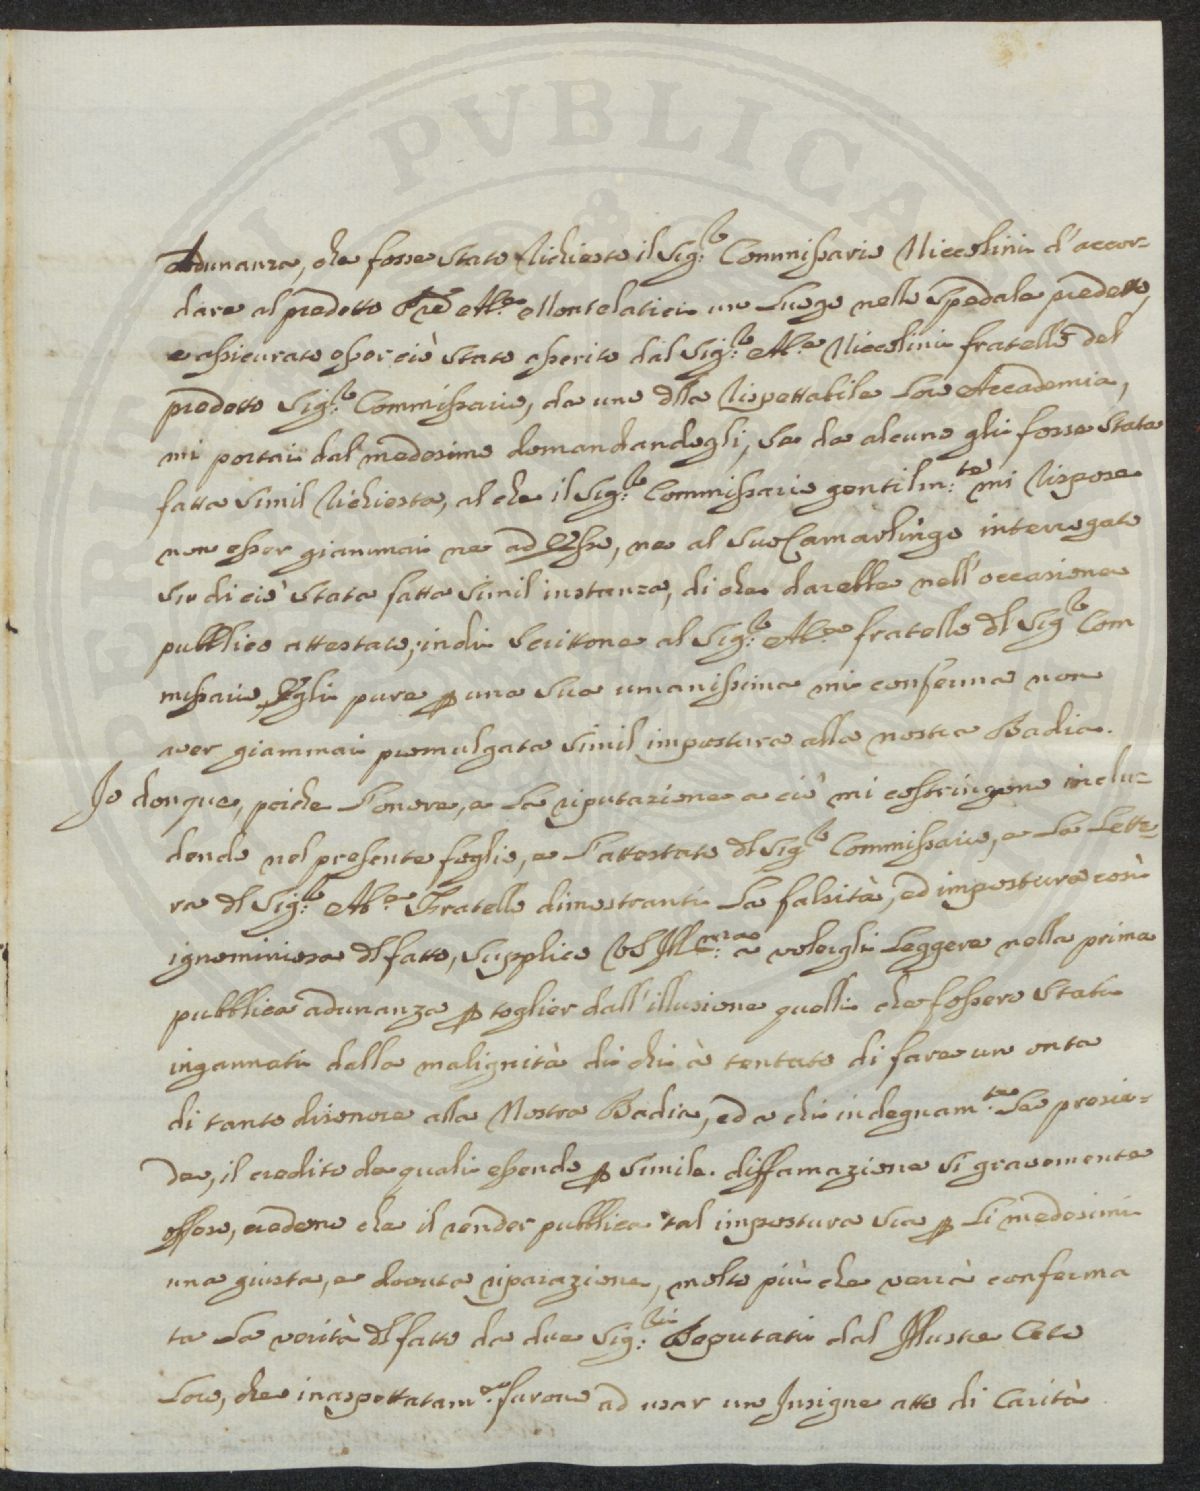 adunanza, che fosse stato richiesto il Sig:re Commissario Niccolini d'accor-
dare al predetto Pre Ab:e Montelatici un Luogo nello Spedale predetto,
e assicurato esser ciò stato asserito dal Sig:re Ab:e Niccolini fratello del
predetto Sig:re Commissario, da uno dlla Rispettabile Loro Accademia,
mi portai dal medesimo domandandogli, se da alcuno gli fosse stata
fatta simil richiesta, al che il Sig:re Commissario gentilm:te mi rispose
non esser giammai ne ad Esso, ne al suo Camarlingo interrogato
su di ciò stata fatta simil instanza, di che darebbe nell'occasione
pubblico attestato; indi scrittone al Sig:re Ab:e fratello dl Sig:re Com
missario, Egli pure p una sua umanissima mi conferma non
aver giammai promulgata simil impostura alla nostra Badia.
Io donque, poiche l'onore, e la riputazione a ciò mi costringono inclu-
dendo nel presente foglio, e l'attestato dl Sig:re Commissario, e la Lette-
ra dl Sig:re Ab:e Fratello dimostranti la falsità, ed impostura così
ignominiosa dl fatto, supplico VS Ill:ma a volergli Leggere nella prima
pubblica adunanza p toglier dall'illusione quelli che fossero stati
ingannati dalla malignità di chi à tentato di fare un onta
di tanto disonore alla Nostra Badia, ed a chi indegnam:te la presie-
de, il credito de quali essendo p simile diffamazione si gravemente
offeso, credono che il render pubblica tal impostura sia p Li medesimi
una giusta, e dovuta riparazione, molto più che verrà conferma
ta la verità dl fatto da due Sig:ri Deputati dal Illustre Ceto
Loro, che inaspettatam:e furono ad usar un Insigne atto di Carità
PUBLICA